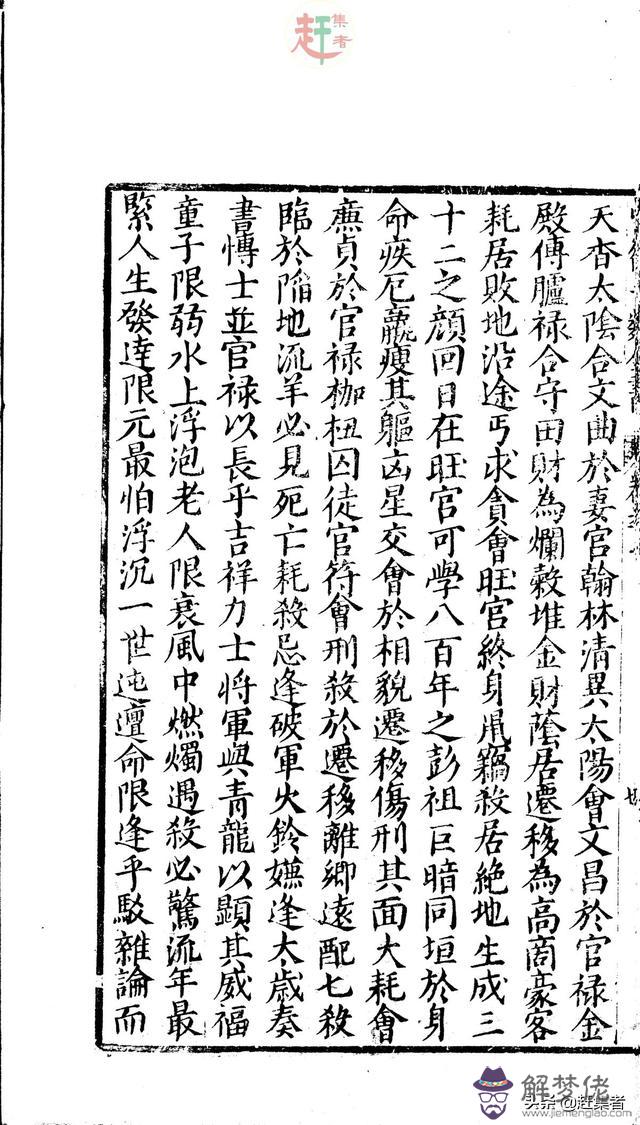 赶集者
天杳太陰合文曲於妻宮翰林清異太陽會文昌於官禄金
殿傳臚禄合守田財為爛穀堆金財蔭居遷移為高商豪客
耗居敗地沿途丐求貪會旺宮終身鼠竊殺居絶地生成三
十二之顔回日在旺宮可學八百年之彭祖巨暗同垣於身
命疾厄羸瘦其軀凶星交會於相貌遷移傷刑其面大耗會
廉貞於官禄枷杻囚徒官符會刑殺於遷移離鄉遠配七殺
臨於陷地流羊必見死亡耗殺忌逢破軍火鈴嫌逢太歲奏
書愽士並官禄以長乎吉祥力士將軍與青龍以顯其威福
童子限弱水上浮泡老人限衰風中燃燭遇殺必驚流年最
緊人生發達限元最怕浮沉一世迍邅命限逢乎駁雜論而
解梦佬
www.jiemenglao.com
头条@赶集者